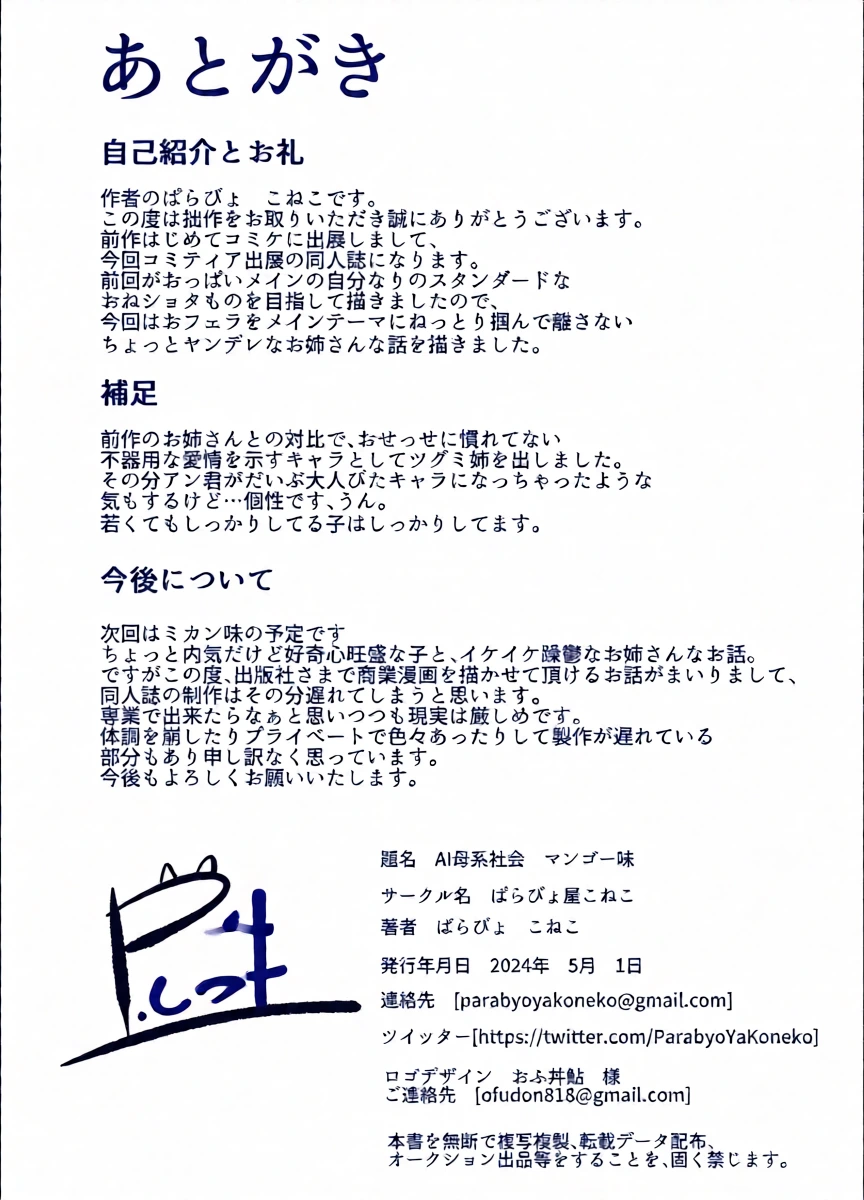 あとがき
自己紹介とお礼
作者のぱらびょ　こねこです。
この度は拙作をお取りいただき誠にありがとうございます。
前作はじめてコミケに出展しまして、
今回コミティア出展の同人誌になります。
前回がおっぱいメインの自分なりのスタンダードな
おねショタものを目指して描きましたので、
今回はおフェラをメインテーマにねっとり掴んで離さない
ちょっとヤンデレなお姉さんな話を描きました。
補足
前作のお姉さんとの対比で、おせっせに慣れてない
不器用な愛情を示すキャラとしてツグミ姉を出しました。
その分アン君がだいぶ大人びたキャラになっちゃったような
気もするけど…個性です、うん。
若くてもしっかりしてる子はしっかりしてます。
今後について
次回はミカン味の予定です
ちょっと内気だけど好奇心旺盛な子と、イケイケ躁鬱なお姉さんなお話。
ですがこの度、出版社さまで商業漫画を描かせて頂けるお話がまいりまして、
同人誌の制作はその分遅れてしまうと思います。
専業で出来たらなぁと思いつつも現実は厳しめです。
体調を崩したりプライベートで色々あったりして製作が遅れている
部分もあり申し訳なく思っています。
今後もよろしくお願いいたします。
題名　AI母系社会　マンゴー味
サークル名　ぱらびょ屋こねこ
著者　ぱらびょ　こねこ
発行年月日　2024年　5月　1日
連絡先　[parabyoyakoneko@gmail.com]
ツイッター[https://twitter.com/ParabyoYaKoneko]
ロゴデザイン　おふ丼鮎　様
ご連絡先　[ofudon818@gmail.com]
本書を無断で複写複製、転載データ配布、
オークション出品等をすることを、固く禁じます。